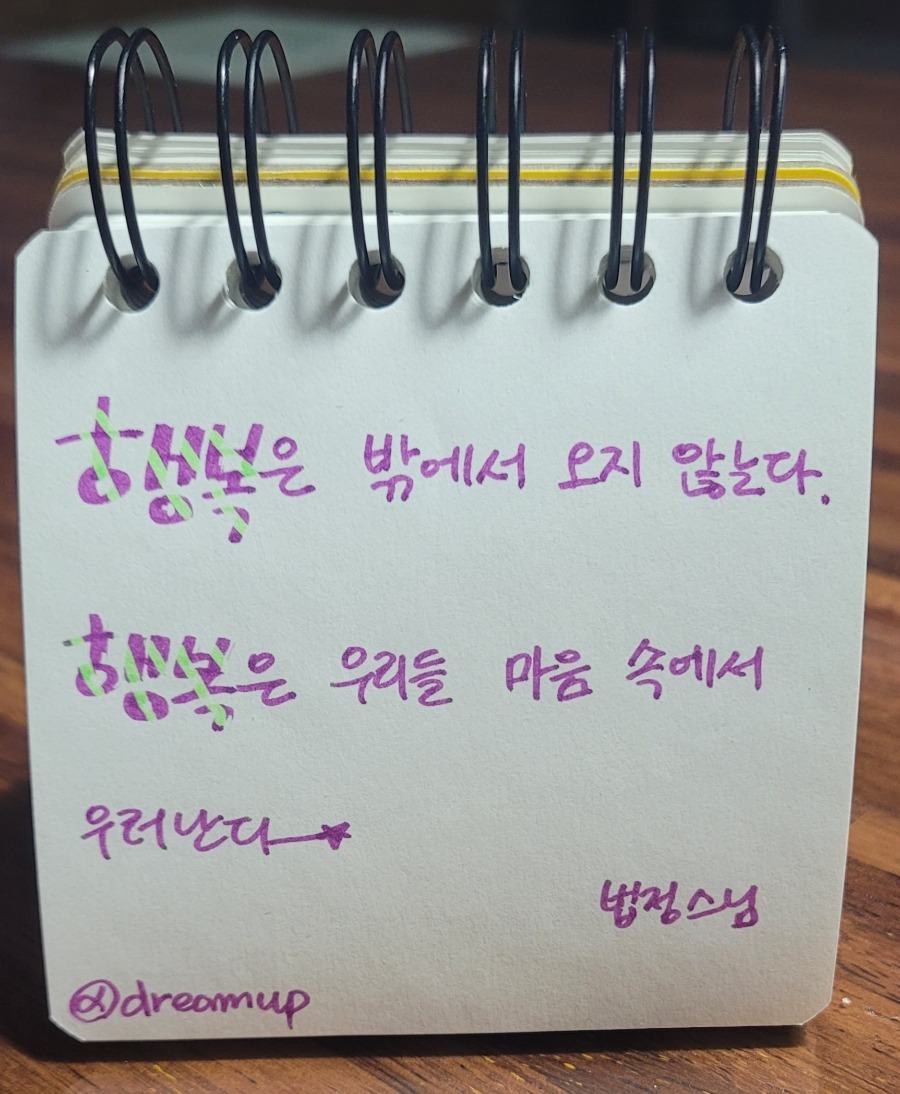 행복은 밖에서 오지 않는다.
행복은 우리들 마음 속에서
우러난다
법정스님
@dreamup